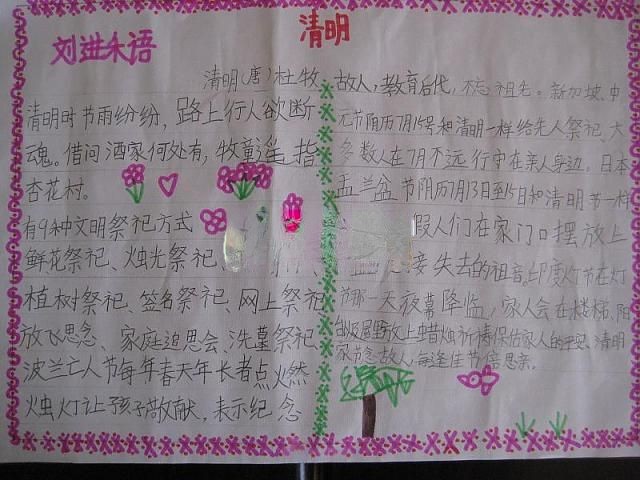 清明
刘进朱语
清明(唐)杜牧
清明时节雨纷纷，路上行人欲断
魂。借问酒家何处有，牧童遥指
杏花村。
有9种文明祭祀方式
鲜花祭祀、烛光祭祀、
植树祭祀、签名祭祀、网上祭祀
放飞思念、家庭追思会、洗墓祭祀、
波兰亡人节每年春天年长者点燃
烛灯让孩子敬献，表示纪念
故人，教育后代，不忘祖先。新加坡、中
元节阴历7月15号和清明一样给先人祭祀、大
多数人在7月不远行守在亲人身边。日本
盂兰盆节阴历7月13日至15日和清明节一样
假人们在家门口摆放上
接失去的祖音。印度灯节在灯
节那一天夜幕降临，家人会在楼梯、阳
台及屋野放上蜡烛祈祷保估家人的平安、清明
家家念故人，每逢佳节倍思亲。